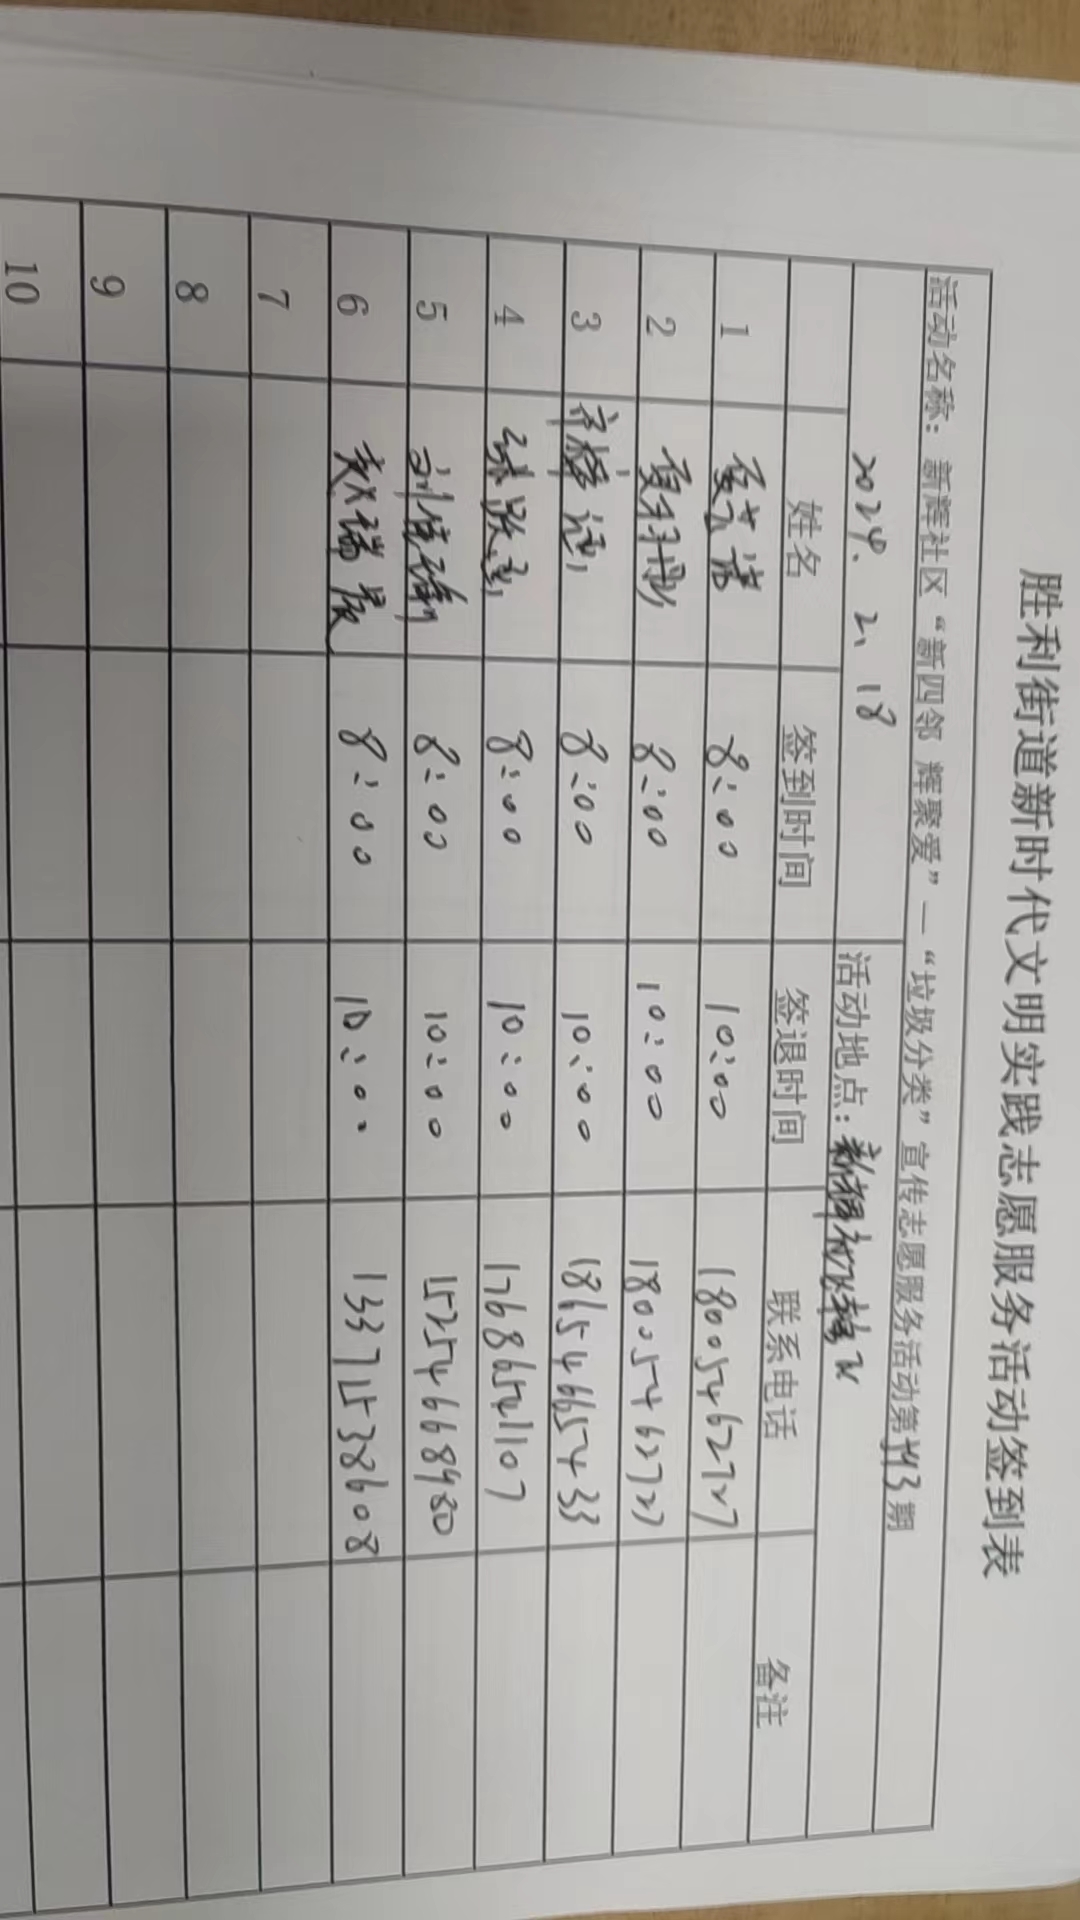 胜利街道新时代文明实践志愿服务活动签到表
活动名称：新辉社区“新四邻 辉聚爱”—“垃圾分类”宣传志愿服务活动第143期
2024.2.18 活动地点：
姓名 签到时间 签退时间 联系电话 备注
1 8:00 10:00 18005462727
2 8:00 10:00 18005462727
3 8:00 10:00 18654665433
4 8:00 10:00 17686541107
5 8:00 10:00 15254668980
6 赵瑞晨 8:00 10:00 13371538608
7
8
9
10